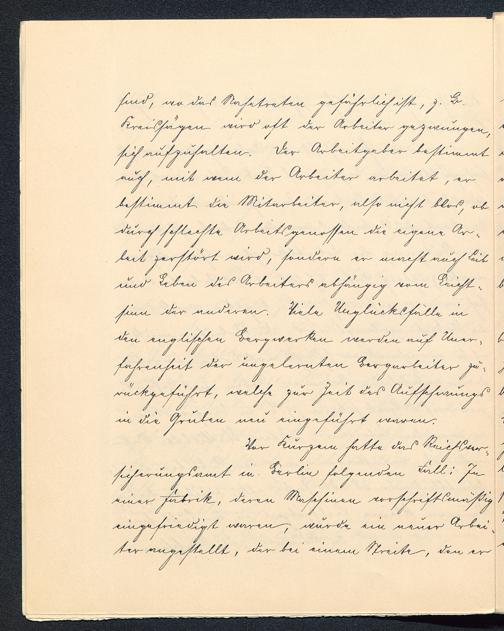 sind, wo das Nahetreten gefährlich ist, z. B.
Kreissägen wird oft der Arbeiter gezwungen,
sich aufzuhalten. Der Arbeitgeber bestimmt
auch, mit wem der Arbeiter arbeitet, er
bestimmt die Mitarbeiter, also nicht blos, ob
durch schlechte Arbeitsgenossen die eigene Ar-
beit zerstört wird, sondern er macht auch Leib
und Leben des Arbeiters abhängig vom Leicht-
sinn der anderen. Viele Unglücksfälle in
den englischen Bergwerken werden auf Uner-
fahrenheit der ungelernten Bergarbeiter zu-
rückgeführt, welche zur Zeit des Aufschwungs
in die Gruben neu eingeführt waren.
Vor Kurzem hatte das Reichsver-
sicherungsamt in Berlin folgenden Fall: In
einer Fabrik, deren Maschinen vorschriftsmäßig
eingefriedigt waren, wurde ein neuer Arbei-
ter angestellt, der bei einem Streite, den er